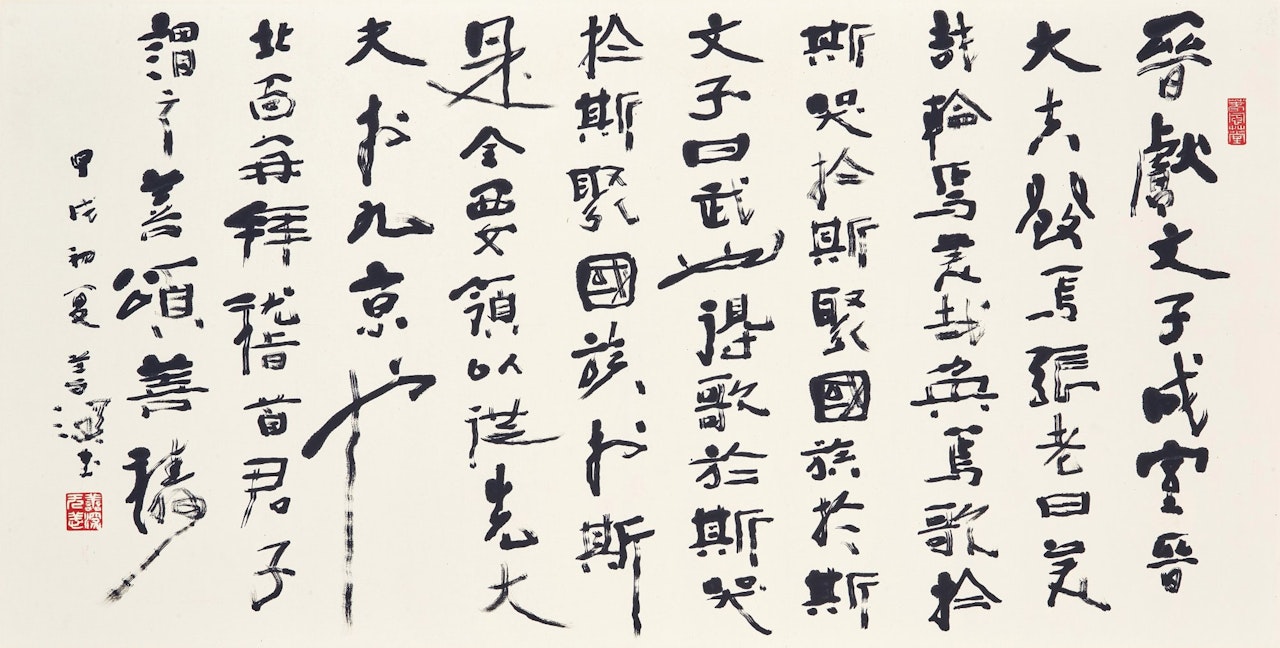 晉獻文子成室晉
大夫發焉張老曰美
哉輪焉美哉奐焉歌於
斯哭於斯聚國族於斯
文子曰武也得歌於斯哭
於斯聚國族於斯
是全要領以從先大
夫於九京也
北面再拜稽首君子
謂之善頌善禱
甲戌初夏書